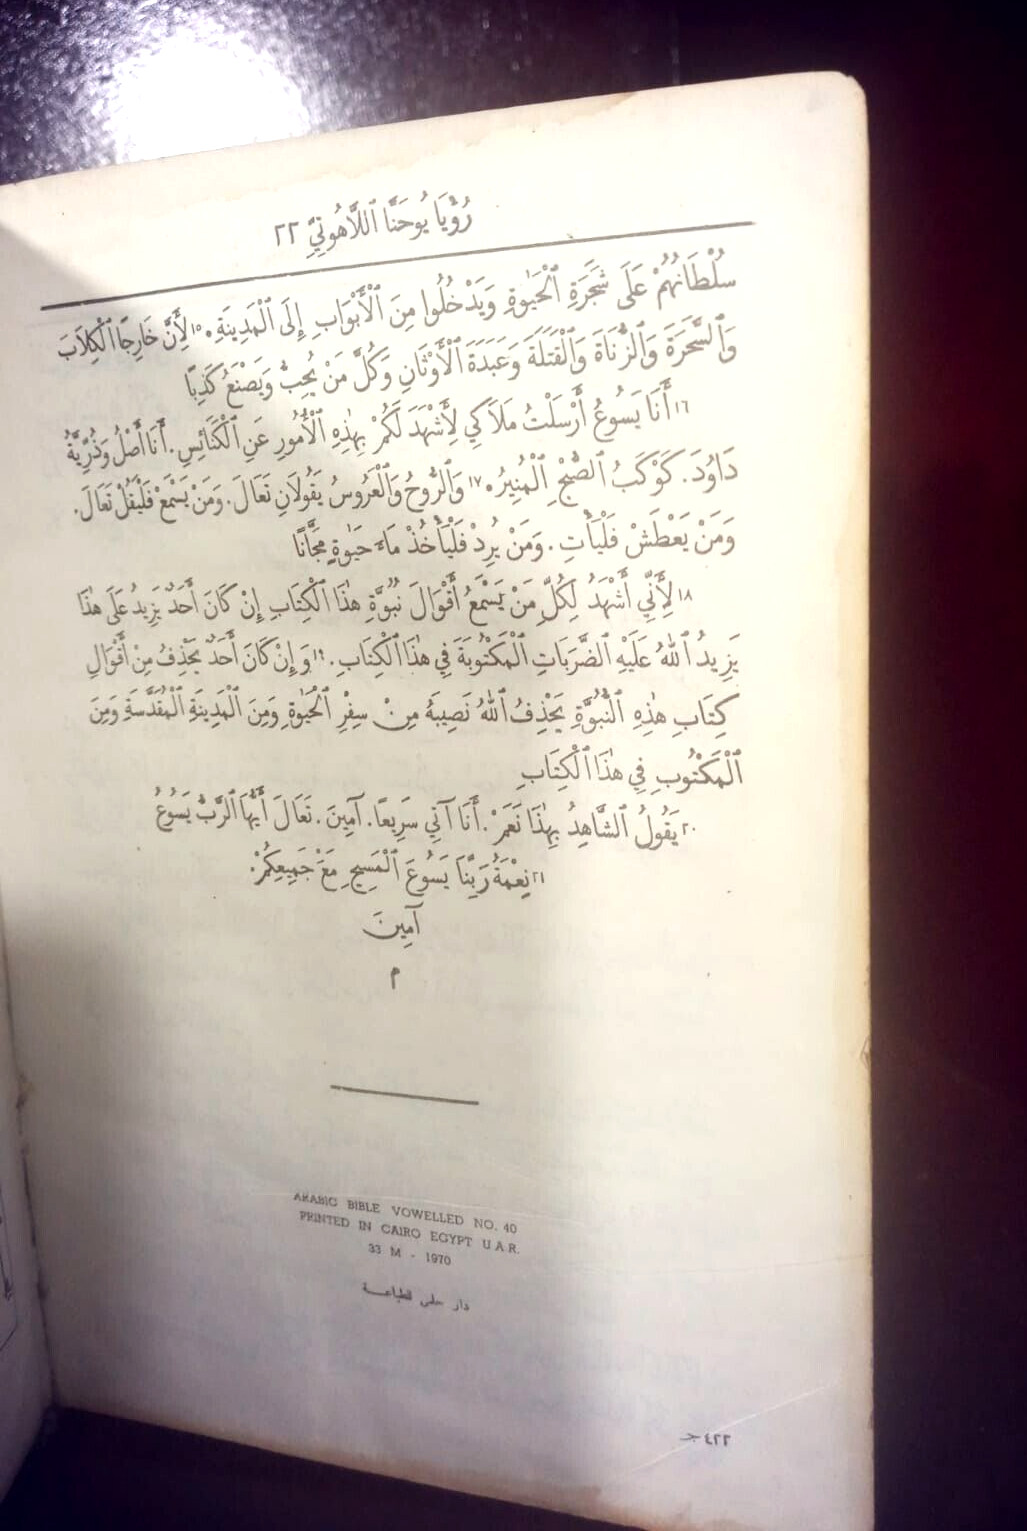 رُؤْيَا يُوحَنَّا ٱللَّاهُوتِيِّ ٢٢
سُلْطَانُهُمْ عَلَى شَجَرَةِ ٱلْحَيٰوةِ وَيَدْخُلُوا مِنَ ٱلْأَبْوَابِ إِلَى ٱلْمَدِينَةِ. ١٥ لِأَنَّ خَارِجًا ٱلْكِلَابَ
وَٱلسَّحَرَةَ وَٱلزُّنَاةَ وَٱلْقَتَلَةَ وَعَبَدَةَ ٱلْأَوْثَانِ وَكُلَّ مَنْ يُحِبُّ وَيَصْنَعُ كَذِبًا
١٦ أَنَا يَسُوعُ أَرْسَلْتُ مَلَاكِي لِأَشْهَدَ لَكُمْ بِهٰذِهِ ٱلْأُمُورِ عَنِ ٱلْكَنَائِسِ. أَنَا أَصْلُ وَذُرِّيَّةُ
دَاوُدَ. كَوْكَبُ ٱلصُّبْحِ ٱلْمُنِيرُ. ١٧ وَٱلرُّوحُ وَٱلْعَرُوسُ يَقُولَانِ تَعَالَ. وَمَنْ يَسْمَعْ فَلْيَقُلْ تَعَالَ.
وَمَنْ يَعْطَشْ فَلْيَأْتِ. وَمَنْ يُرِدْ فَلْيَأْخُذْ مَاءَ حَيٰوةٍ مَجَّانًا
١٨ لِأَنِّي أَشْهَدُ لِكُلِّ مَنْ يَسْمَعُ أَقْوَالَ نُبُوَّةِ هٰذَا ٱلْكِتَابِ إِنْ كَانَ أَحَدٌ يَزِيدُ عَلَى هٰذَا
يَزِيدُ ٱللهُ عَلَيْهِ ٱلضَّرَبَاتِ ٱلْمَكْتُوبَةَ فِي هٰذَا ٱلْكِتَابِ. ١٩ وَإِنْ كَانَ أَحَدٌ يَحْذِفُ مِنْ أَقْوَالِ
كِتَابِ هٰذِهِ ٱلنُّبُوَّةِ يَحْذِفُ ٱللهُ نَصِيبَهُ مِنْ سِفْرِ ٱلْحَيٰوةِ وَمِنَ ٱلْمَدِينَةِ ٱلْمُقَدَّسَةِ وَمِنَ
ٱلْمَكْتُوبِ فِي هٰذَا ٱلْكِتَابِ
٢٠ يَقُولُ ٱلشَّاهِدُ بِهٰذَا نَعَمْ. أَنَا آتِي سَرِيعًا. آمِينَ. تَعَالَ أَيُّهَا ٱلرَّبُّ يَسُوعُ
٢١ نِعْمَةُ رَبِّنَا يَسُوعَ ٱلْمَسِيحِ مَعَ جَمِيعِكُمْ.
آمِينَ
م
ARABIC BIBLE VOWELLED NO. 40
PRINTED IN CAIRO EGYPT U.A.R.
33 M - 1970
دار حلمى للطباعـــة
٤٢٢